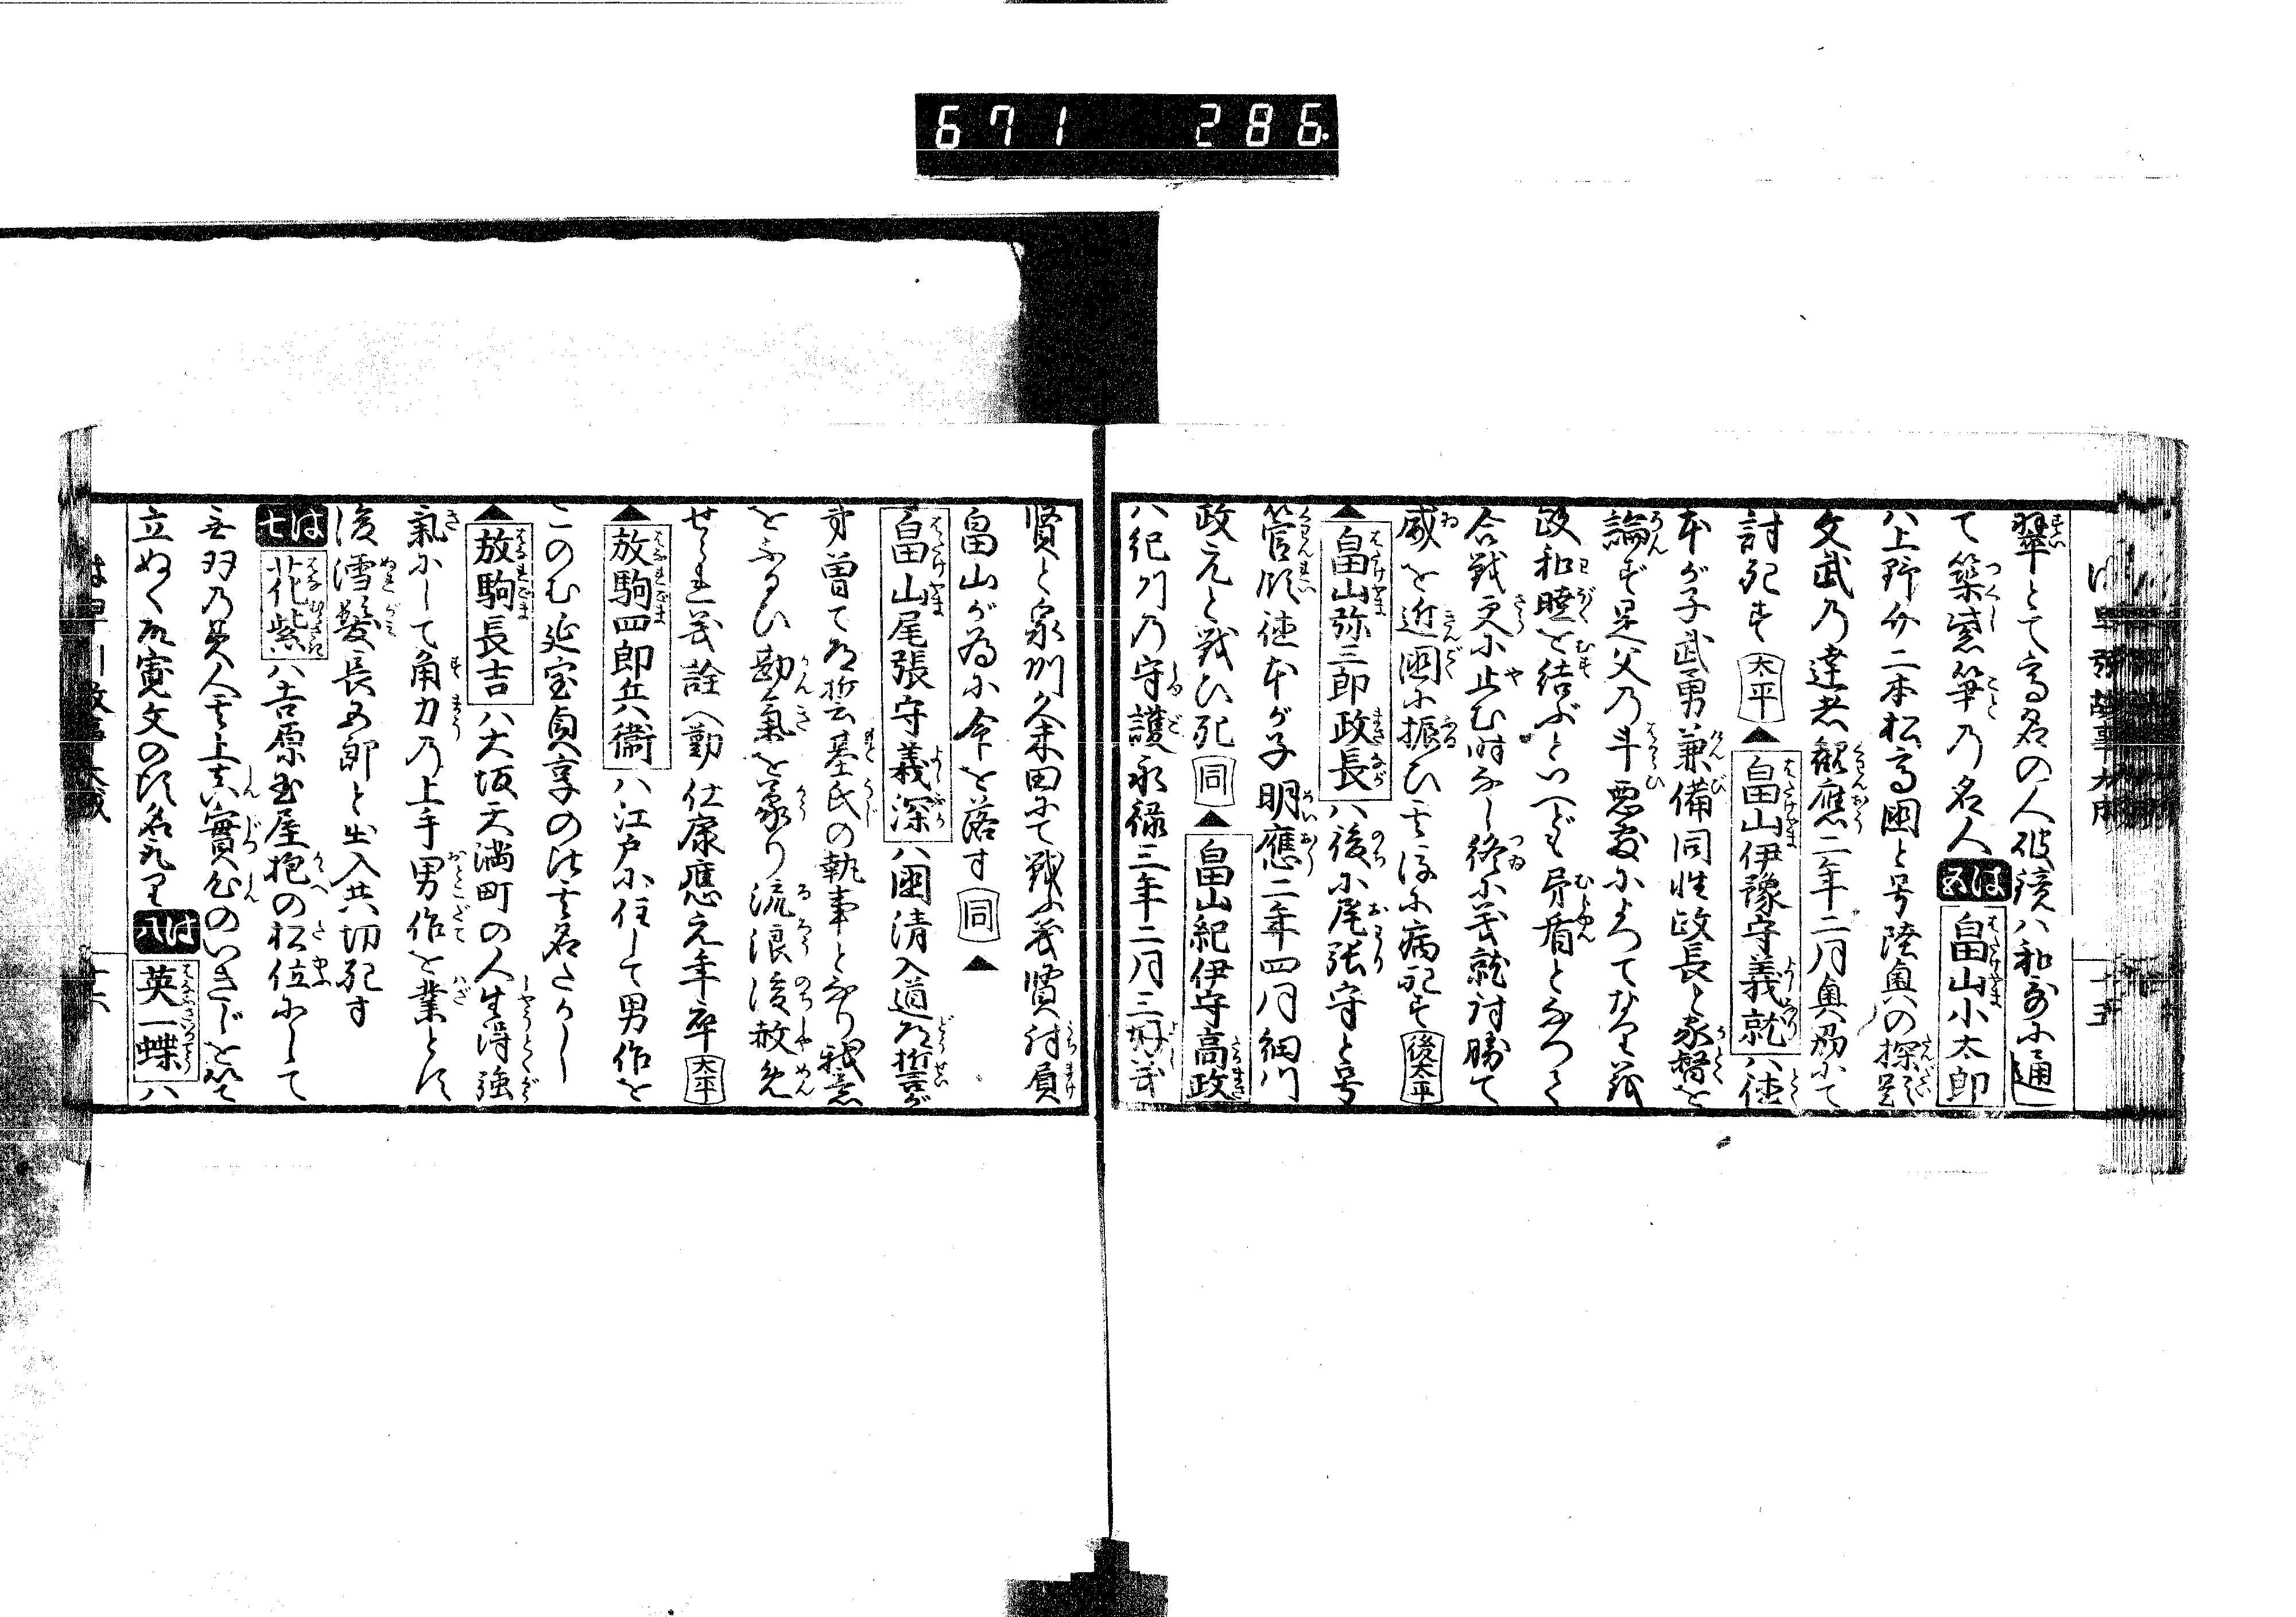 671 286.
翠とて高名の人破鏡ハ和哥に通
て築紫箏乃名人 は五 畠山小太郎
ハ上野介二本松高国と号陸奥の探題
文武乃達者観應二年二月奥州にて
討死す 太平 ▲畠山伊豫守義就ハ徳
本が子武勇兼備同性政長と家督を
論ず是父乃斗悪敷によつてなり義
政和睦を結ぶといへども矛盾となつて
合戦更に止む時なし終に義就討勝て
威を近国に振ひ其後に病死す 後太平
▲畠山弥三郎政長ハ後に尾張守と号
管領徳本が子明應二年四月細川
政元と戦ひ死 同 ▲畠山紀伊守高政
ハ紀州乃守護永禄三年二月三好義
賢と泉州久米田にて戦ふ義賢討負
畠山が為に命を落す 同 ▲
畠山尾張守義深ハ国清入道道誓が
弟曽て道哲云基氏の執事となり我意
をふるひ勘氣を蒙り流浪後赦免
せられ義詮へ勤仕康應元年卒 太平
▲放駒四郎兵衞ハ江戸に住して男作を
このむ延宝貞享の比其名たかし
▲放駒長吉ハ大坂天満町の人生得強
氣にして角力乃上手男作を業とす
後濡髪長五郎と出入共切死す
は七 花紫ハ吉原玉屋抱の松位にして
無双乃美人其上真實心のいきじを以て
立ぬく頃寛文の比名たかし は八 英一蝶ハ